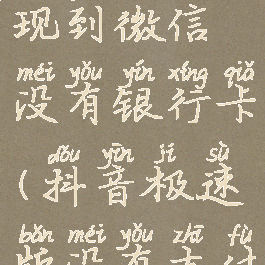 现到微信
méi yǒu yín xíng qiǎ
没有银行卡
dǒu yīn jí sù
(抖音极速
bǎn méi yǒu zhī fù
版没有支付